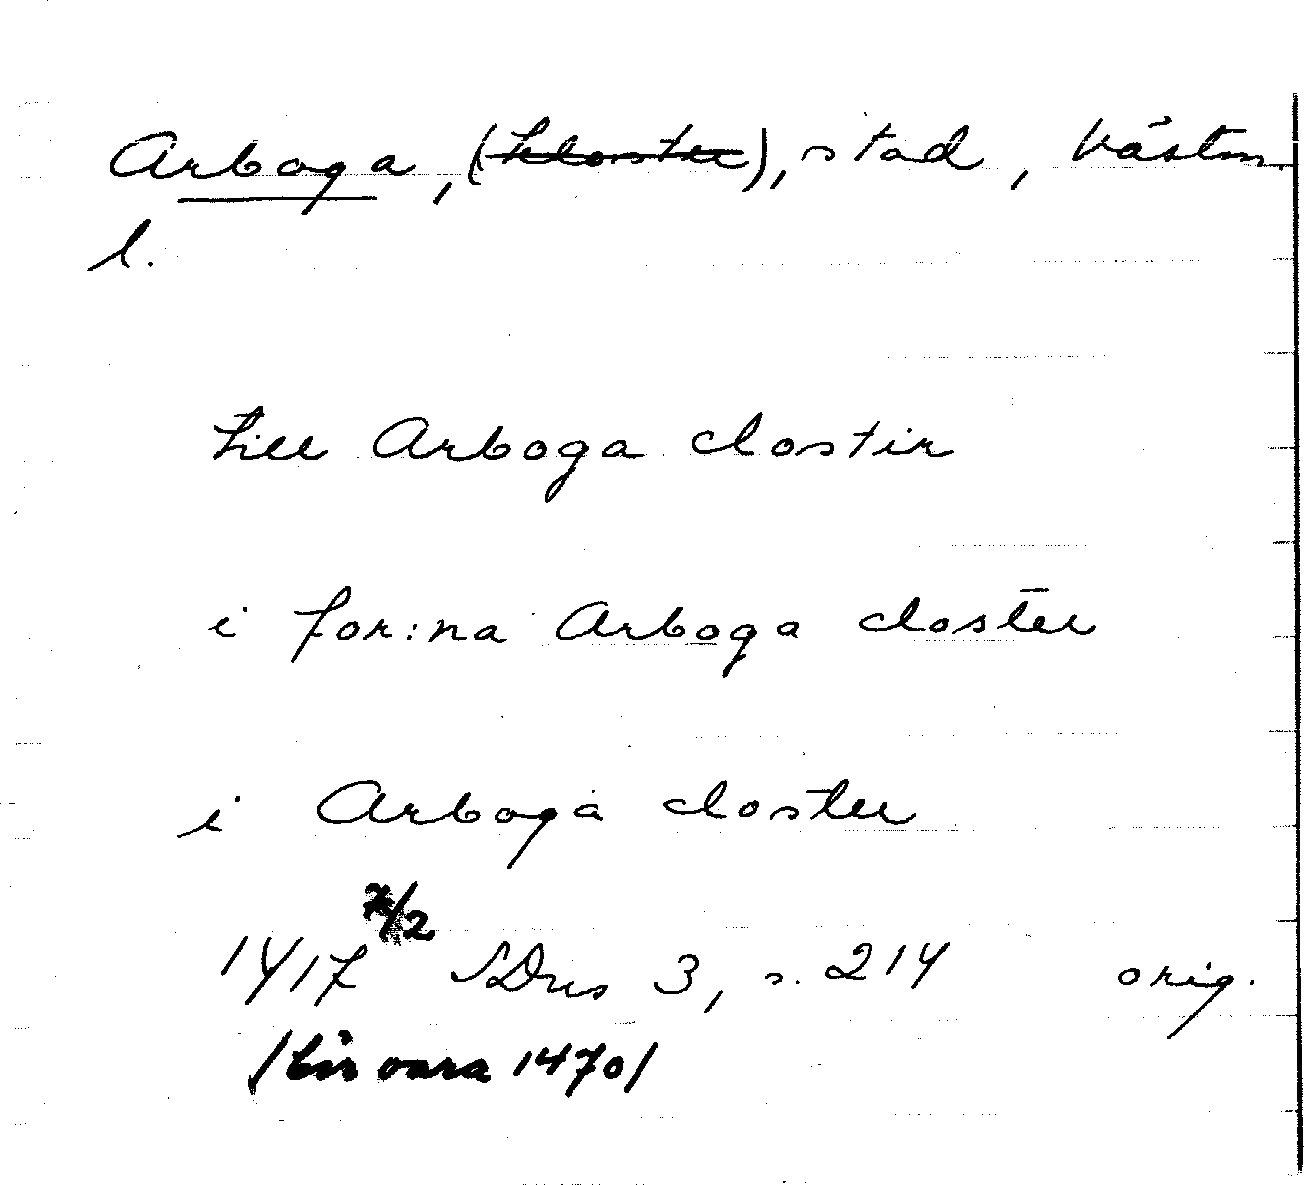 Arboga, (kloster), stad, Västm.
l.
till Arboga clostir
i for:na Arboga closter
i Arboga closter
1417 7/2 SDns 3, s. 214 orig.
/bör vara 1470/